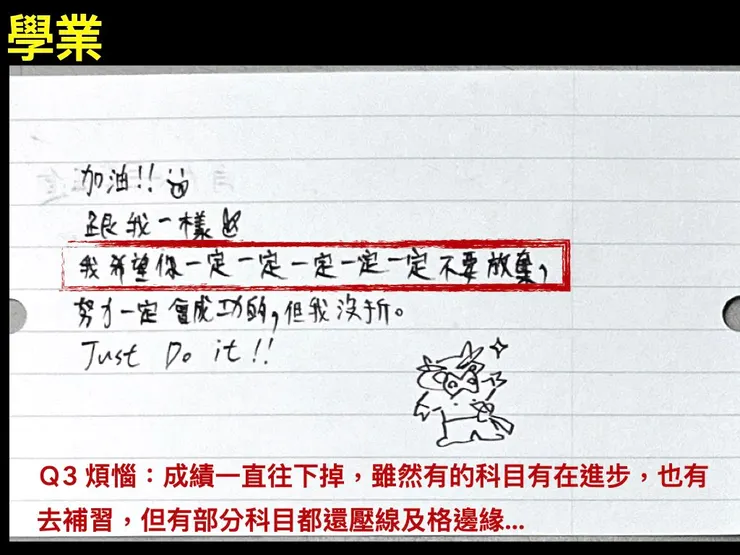 學業
加油!!
跟我一樣
我希望你一定一定一定一定一定不要放棄,
努力一定會成功的,但我沒折。
Just Do it!!
Q3 煩惱：成績一直往下掉，雖然有的科目有在進步，也有
去補習，但有部分科目都還壓線及格邊緣...